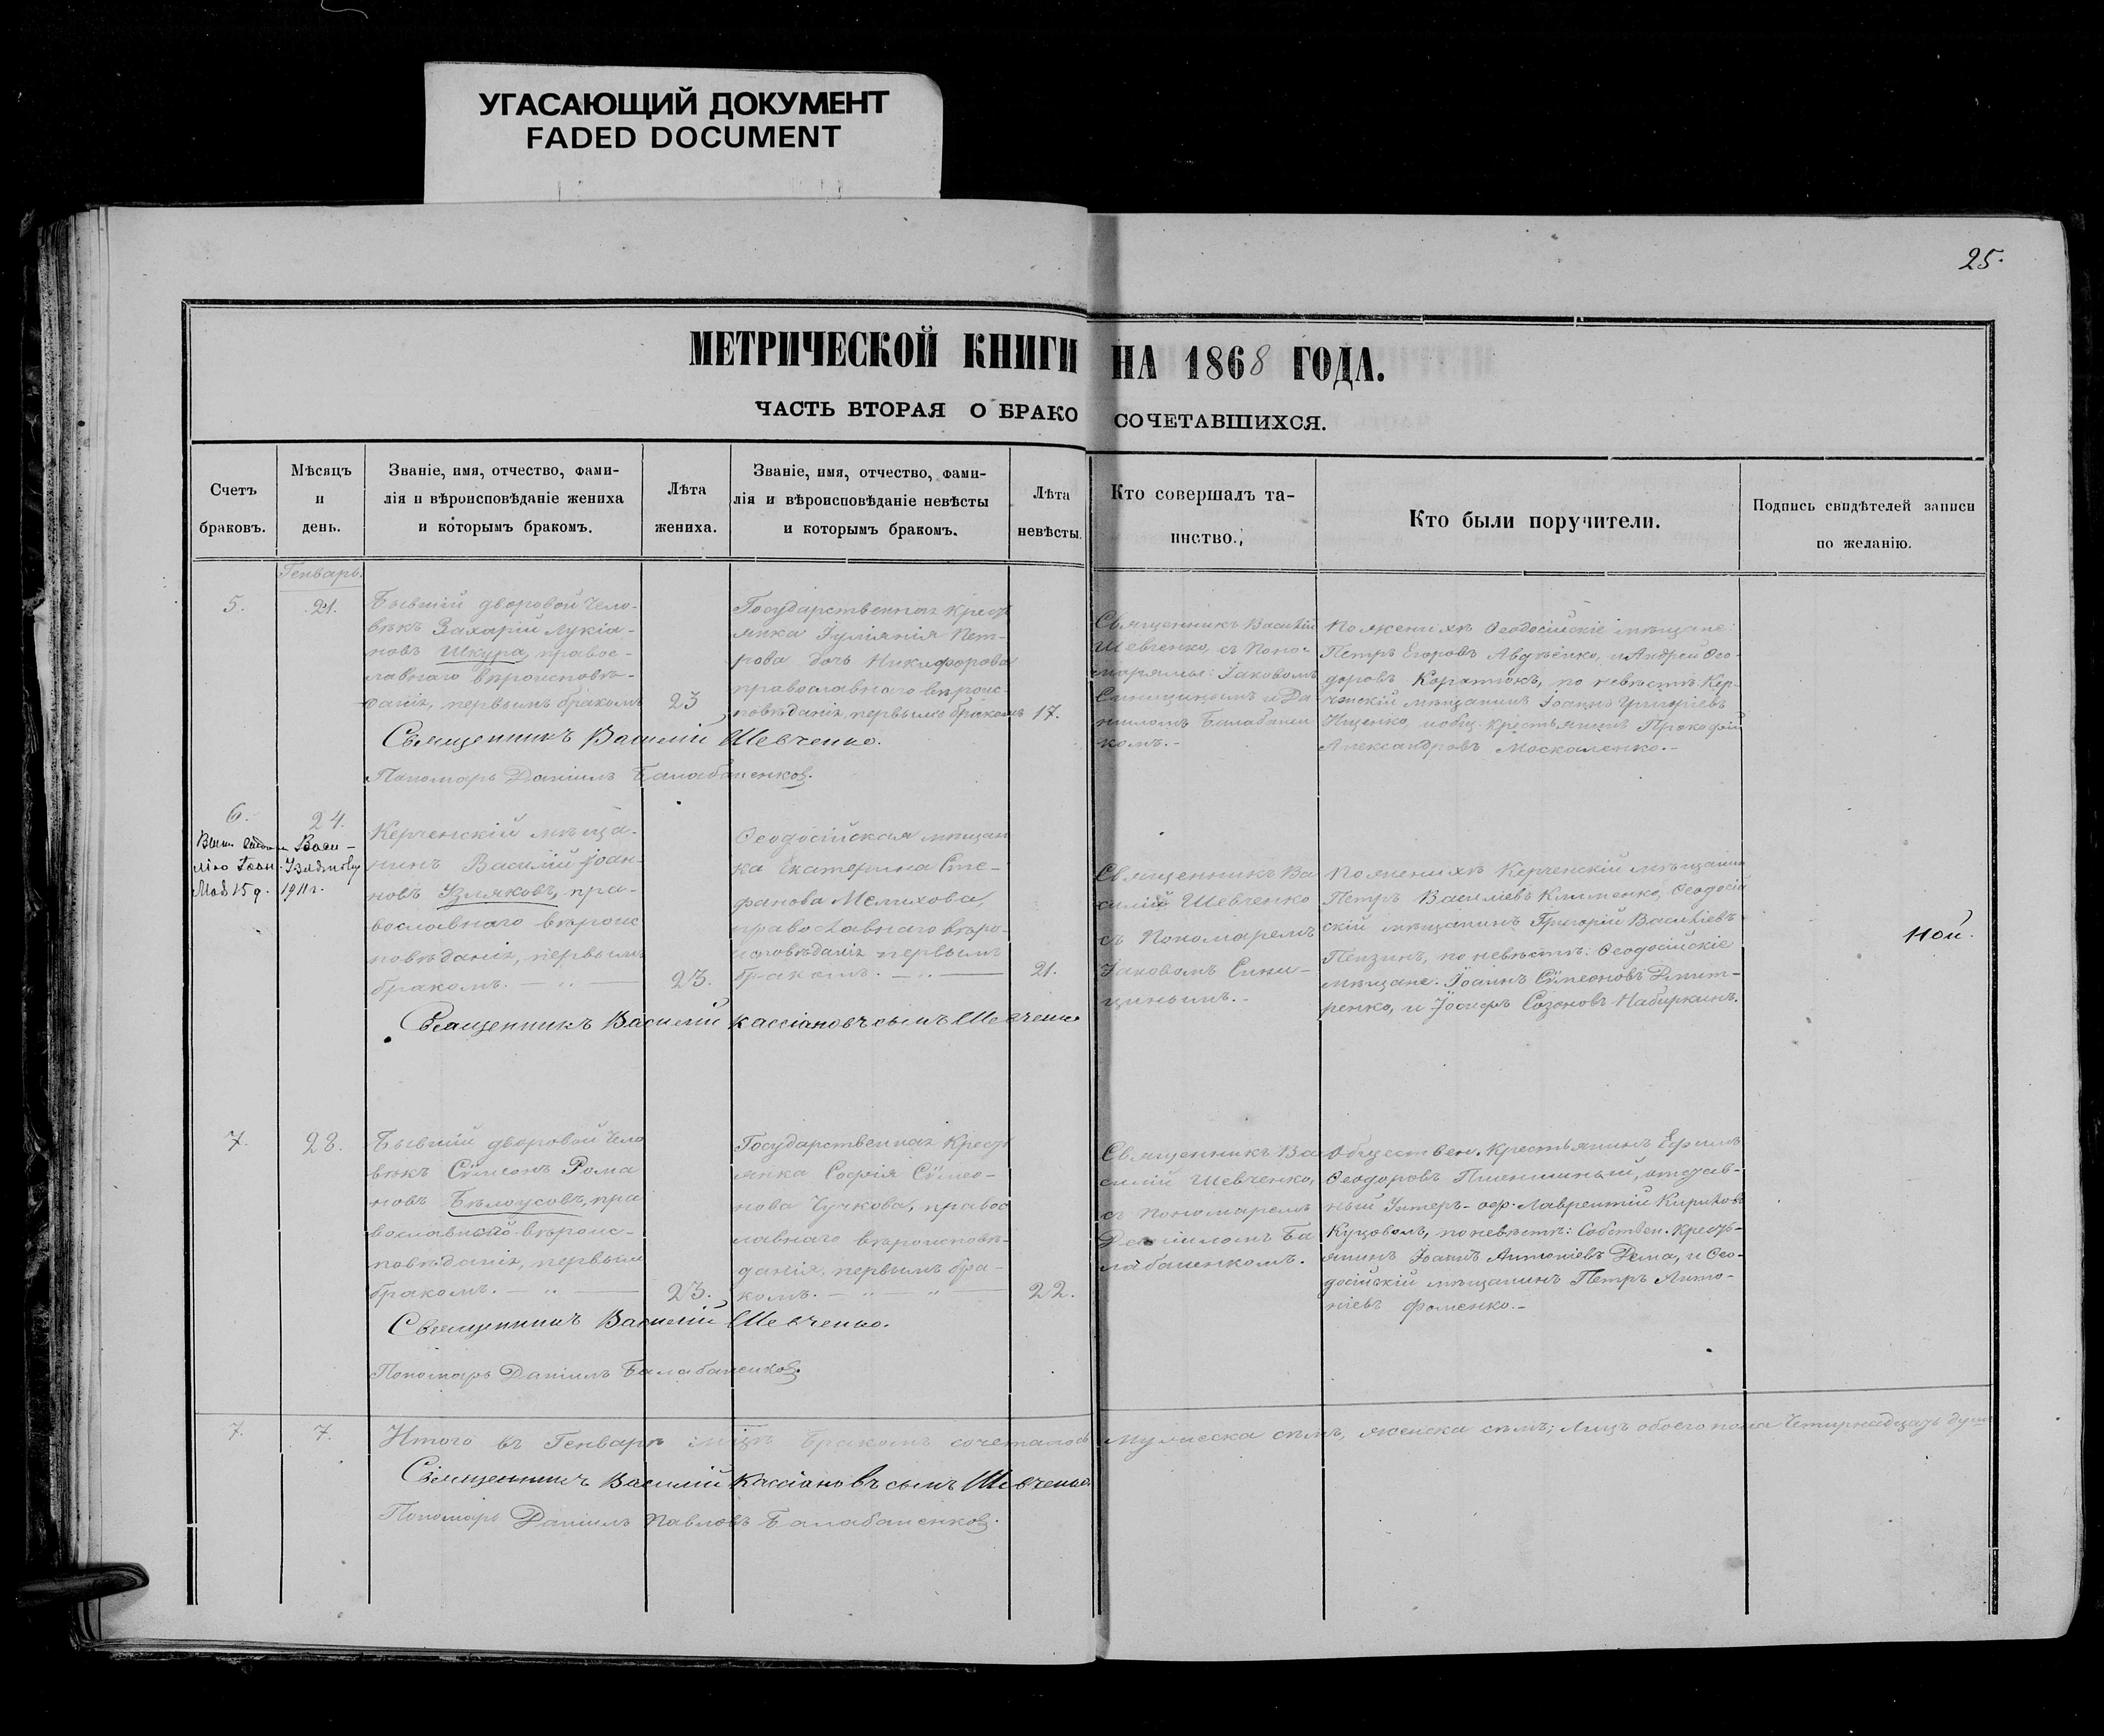 УГАСАЮЩИЙ ДОКУМЕНТ
FADED DOCUMENT
25.
МЕТРИЧЕСКОЙ КНИГИ НА 1868 ГОДА.
ЧАСТЬ ВТОРАЯ О БРАКО СОЧЕТАВШИХСЯ.
Счетъ
браковъ.
Мѣсяцъ
и
день.
Званіе, имя, отчество, фами-
лія и вѣроисповѣданіе жениха
и которымъ бракомъ.
Лѣта
жениха.
Званіе, имя, отчество, фами-
лія и вѣроисповѣданіе невѣсты
и которымъ бракомъ.
Лѣта
невѣсты.
Кто совершалъ та-
инство.
Кто были поручители.
Подпись свидѣтелей записи
по желанію.
Генварь.
5.
21.
Бывшій дворовой чело-
вѣкъ Захарій Лукіа-
новъ Шкура, правос-
лавнаго вѣроисповѣ-
данія, первымъ бракомъ
23
Государственная крестъ
янка Іуліянія Пет-
рова дочь Никифорова
православнаго вѣроис-
повѣданія, первымъ бракомъ
17.
Священникъ Василій
Шевченко, съ Поно-
марями: Іаковомъ
Синицинымъ и Да-
ниломъ Балабанен
комъ.-
По женихѣ Ѳеодосійскіе мѣщане:
Петръ Егоровъ Авдѣенко, и Андрей Ѳео-
доровъ Коратюкъ, по невѣстѣ: Кер-
ченскій мѣщанинъ Іоаннъ Григоріевъ
Ищенко, и общ. крестьянинъ Прокофій
Александровъ Москаленко.-
Священникъ Василій Шевченко.
Пономарь Даніилъ Балабаненковъ.
6.
24.
Васи-
лію Іоан. Узлякову
Мая 15 д. 1911 г.
Керченскій мѣща-
нинъ Василій Іоан-
новъ Узляковъ, пра-
вославнаго вѣроис
повѣданія, первымъ
бракомъ. - „ -
23.
Ѳеодосійская мѣщан
ка Екатерина Сте-
фанова Мелихова,
православнаго вѣро-
исповѣданія первымъ
бракомъ. - „ -
21.
Священникъ Ва
силій Шевченко
съ Пономаремъ
Іаковомъ Сини-
цинымъ.-
По женихѣ Керченскій мѣщанин
Петръ Василіевъ Клименко, Ѳеодосій
скій мѣщанинъ Григорій Василіевъ
Пензинъ, по невѣстѣ: Ѳеодосійскіе
мѣщане: Іоаннъ Сѵмеоновъ Дмит-
ренко, и Іосифъ Созоновъ Набиркинъ.
Священникъ Василій Кассіановъ сынъ Шевченко
7.
28.
Бывшій дворовой чело
вѣкъ Сѵмеонъ Рома
новъ Бѣлоусовъ, пра
вославнаго вѣроис-
повѣданія, первым
бракомъ. - „ -
23.
Государственная крестъ
янка Софія Сѵмео-
нова Чучкова, правос
лавнаго вѣроисповѣ-
данія, первымъ бра-
комъ. - „ - „ -
22.
Священникъ Ва
силій Шевченко,
съ пономаремъ
Даніиломъ Ба
лабаненкомъ.
Обществен. крестьянинъ Ефимъ
Ѳеодоровъ Пшеншиный, отстав-
ный Унтеръ-оф. Лаврентій Кириловъ
Куцовомъ, по невѣстѣ: Собствен. крестъ-
янинъ Іоаннъ Антоніевъ Дема, и Ѳео-
досійскій мѣщанинъ Петръ Анто-
ніевъ Фоменко.-
Священникъ Василій Шевченко.
Пономарь Даніилъ Балабаненковъ.
7.
7.
Итого въ Генварѣ м-цѣ бракомъ сочеталось Мужеска семъ, женска семъ; лицъ обоего пола четырнадцать душъ
Священникъ Василій Кассіановъ сынъ Шевченко
Пономарь Даніилъ Павловъ Балабаненковъ.